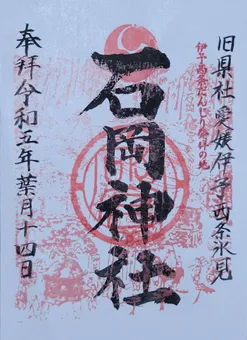 旧県社愛媛伊予西条氷見
伊予西条だんじり発祥の地
石岡神社
奉拝令和五年葉月十四日